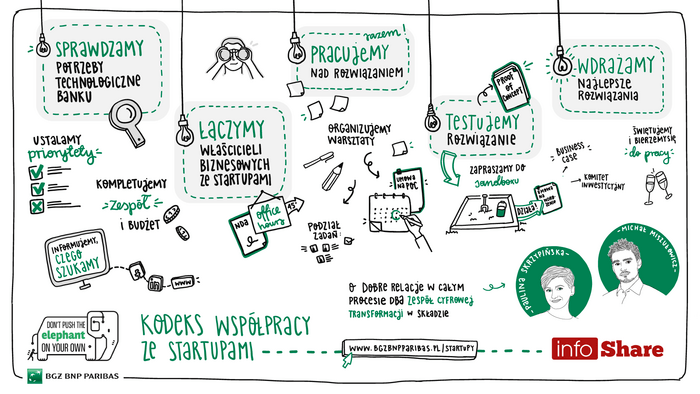 SPRAWDZAMY
POTRZEBY
TECHNOLOGICZNE
BANKU
USTALAMY
priorytety
KOMPLETUJEMY
zespół
i BUDŻET
INFORMUJEMY,
CZEGO
SZUKAMY
in
www
ŁĄCZYMY
WŁAŚCICIELI
BIZNESOWYCH
ZE STARTUPAMI
NDA
office
hours
razem!
PRACUJEMY
NAD ROZWIĄZANIEM
ORGANIZUJEMY
WARSZTATY
UMOWA
NA POC
PODZIAŁ
ZADAŃ
PROOF
OF
CONCEPT
TESTUJEMY
ROZWIĄZANIE
ZAPRASZAMY DO
sandboxu
DZIAŁA!
BUSINESS
CASE
KOMITET
INWESTYCYJNY
WDRAŻAMY
NAJLEPSZE
ROZWIĄZANIA
ŚWIĘTUJEMY
i BIERZEMY SIĘ
do pracy
O DOBRE RELACJE W CAŁYM
PROCESIE DBA ZESPÓŁ CYFROWEJ
TRANSFORMACJI W SKŁADZIE
PAULINA SKRZYPIŃSKA
MICHAŁ MISZUŁOWICZ
DON'T PUSH THE
elephant
ON YOUR OWN
KODEKS WSPÓŁPRACY
ZE STARTUPAMI
WWW.BGZBNPPARIBAS.PL/STARTUPY
info Share
BGZ BNP PARIBAS